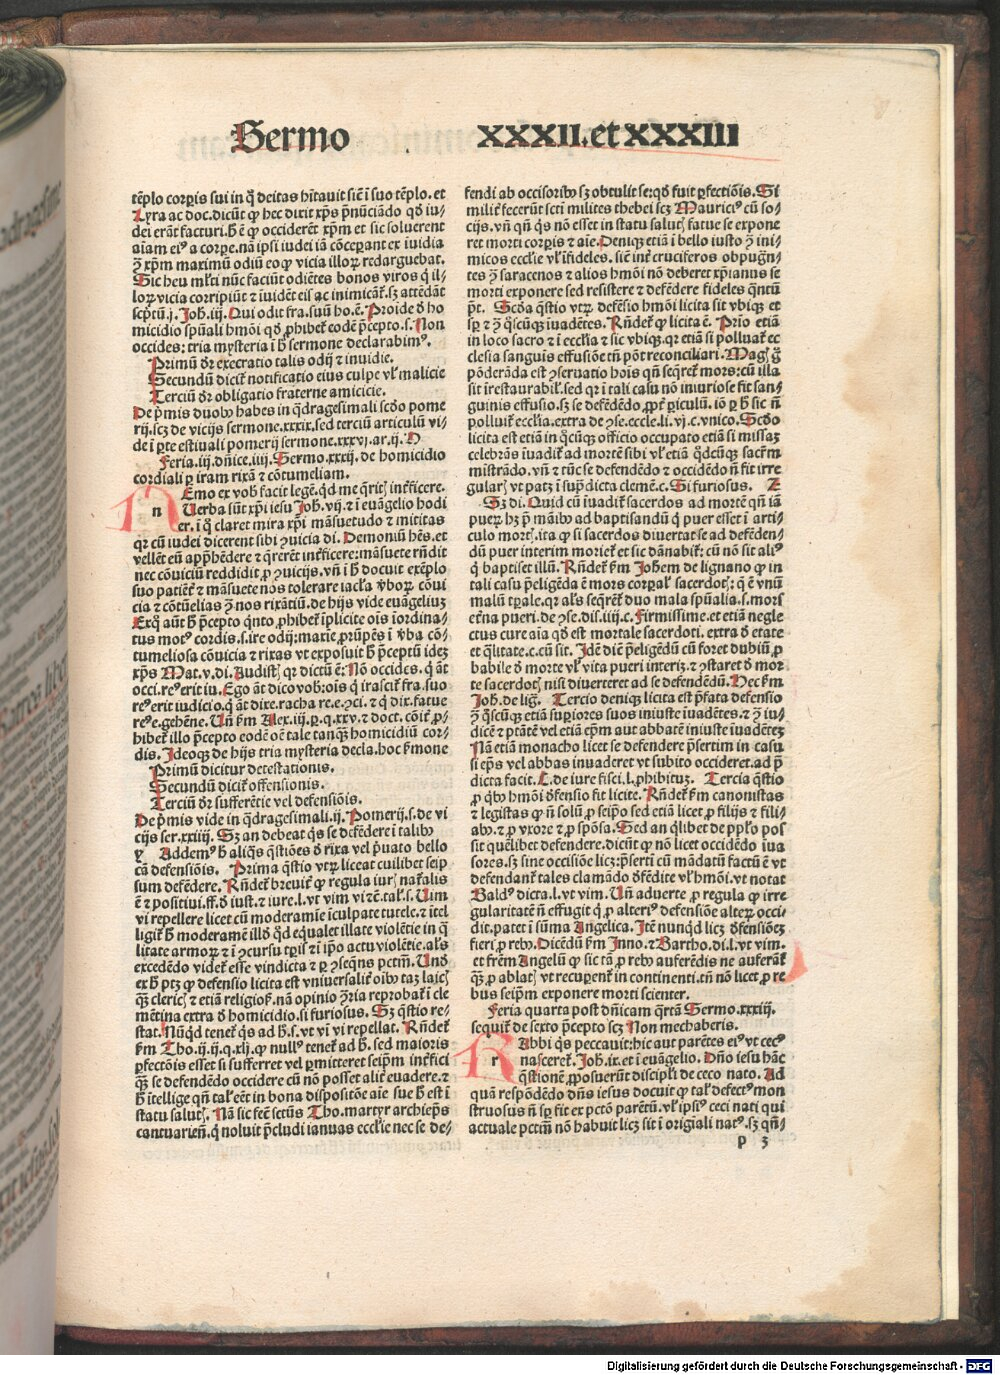 Sermo XXXII. et XXXIII
tēplo corꝑis sui in q̄ deitas hītauit siē i suo tēplo. et
Lyra ac doc. dicūt ꝙ hec dixit xp̄s p̄nūciādo qđ iu-
dei erāt facturi. h̄ ē ꝙ occiderēt xp̄m et sic soluerent
aīam ei⁹ a corꝑe. nā ipsi iudei iā cōceꝑant ex iuidia
ꝫ xp̄m maximū odiū eo ꝙ vicia illoꝝ redarguebat.
Sic heu ml̄ti nūc faciūt odiētes bonos viros q̄ il-
loꝝ vicia corripiūt ⁊ iuidēt eis ac inimicāt̄. sꝫ attēdāt
sc̄ptū. j. Joh. iij. Qui odit fra. suū ho. ē. Proide đ ho
micidio spūali hmōi qđ ꝓhibet̄ eodē p̄cepto. s. Non
occides: tria mysteria ī h̄ sermone declarabim⁹.
Primū đr execratio talis odij ⁊ inuidie.
Secundū dicit̄ notificatio eius culpe vl̄ malicie
Terciū đr obligatio fraterne amicicie.
De p̄mis duobꝫ habes in q̄dragesimali scđo pome
rij. scꝫ de vicijs sermone. xxxix. sed terciū articulū vi-
de ī ꝑte estiuali pomerij sermone. xxxvj. ar. ij. D
Feria. iij. dn̄ice. iiij. Sermo. xxxij. de homicidio
cordiali ꝑ iram rixā ⁊ cōtumeliam.
NEmo ex vob̄ facit legē. qđ me q̄rit̄ int̄ficere.
n Uerba sūt xp̄i iesu Joh. vij. ⁊ ī euāgelio hodi
er. ī q̄ claret mira xp̄i māsuetudo ⁊ mititas
qꝛ cū iudei dicerent sibi ꝯuicia di. Demoniū hēs. et
vellēt eū app̄hēdere ⁊ q̄rerēt int̄ficere: māsuete rn̄dit
nec cōuiciū reddidit ꝓ ꝯuicijs. vn̄ ī h̄ docuit exēplo
suo patiēt̄ ⁊ māsuete nos tolerare iacl̄a v̄boꝝ cōui
cia ⁊ cōtūelias ꝫ nos rixātiū. de hijs vide euāgeliuꝫ
Exq̄ aūt h̄ p̄cepto q̄nto ꝓhibet̄ īplicite oīs īordina-
tus mot⁹ cordis. s. ire odij: maxīe ꝓrūpēs ī v̄ba cō-
tumeliosa cōuicia ⁊ rixas vt exposuit h̄ p̄ceptū ideꝫ
xp̄s Mat. v. di. Audistꝭ qꝛ dictū ē: Nō occides. q̄ āt
occi. re⁹ erit iu. Ego āt dico vob̄: oīs q̄ irascit̄ fra. suo
re⁹ erit iudicio. q̄ āt dixe. racha re. e. ꝯci. ⁊ q̄ dix. fatue
re⁹ e. gehēne. Un̄ ẜm Alex. iij. p. q. xxv. ⁊ doct. cōit̄ ꝓ-
hibet̄ illo p̄cepto eodē oē tale tanq̄ꝫ homicidiū cor-
dis. Ideoqꝫ de hijs tria mysteria decla. hoc ẜmone
Primū dicitur detestationis.
Secundū dicit̄ offensionis.
Terciū đr sufferētie vel defensiōis.
De p̄mis vide in q̄dragesimali. ij. Pomerij. s. de vi
cijs ser. xxiiij. Sꝫ an debeat q̄s se defēdere ī talibꝫ
ꝶ Addem⁹ h̄ aliq̄s q̄stiōes đ rixa vel p̄uato bello
cā defensiōis. Prima q̄stio vtꝝ liceat cuilibet seip
sum defēdere. Rn̄det̄ breuit̄ ꝙ regula iur̄ nat̄alis
ē ⁊ positiui. ff. đ iust. ⁊ iure. l. vt vim vi ⁊c̄. tal̄. s. Uim
vi repellere licet cū moderamīe īculpate tutele. ⁊ ītel
ligit̄ h̄ moderamē illđ qđ equalet illate violētie in q̄
litate armoꝝ ⁊ ī ꝯcursu tꝑis ⁊ ī ipo actu violētie. al̄s
excedēdo videt̄ esse vindicta ⁊ ꝑ ꝯseq̄ns pctm̄. Und̄
ex h̄ ptꝫ ꝙ defensio licita est vniuersalit̄ oībꝫ taꝫ laicꝭ
q̄ꝫ clericꝭ ⁊ etiā religiosꝭ. nā opinio ꝯria reprobat̄ ī cle
mētina extra đ homicidio. si furiosus. Sꝫ q̄stio re-
stat. Nūqđ tenet̄ q̄s ad h̄. s. vt vī vi repellat. Rn̄det̄
ẜm Tho. ij. ij. q. xlj. ꝙ null⁹ tenet̄ ad h̄. sed maioris
ꝑfectōis esset si sufferret vel ꝑmitteret seip̄m int̄fici
q̄ꝫ se defendēdo occidere cū nō posset alit̄ euadere. ⁊
h̄ ītellige qn̄ tal̄ eēt in bona dispositōe aīe sue h̄ est ī
statu salutꝭ. Nā sic fec̄ sctūs Tho. martyr archiep̄s
cantuarien̄. q̄ noluit p̄cludi ianuas eccl̄ie nec se de-
fendi ab occisoribꝫ sꝫ obtulit se: qđ fuit ꝑfectiōis. Si
milit̄ fecerūt scti milites thebei scꝫ Maurici⁹ cū so-
cijs. vn̄ qn̄ q̄s nō esset in statu salutꝭ fatue se expone
ret morti corꝑis ⁊ aīe. Deniqꝫ etiā ī bello iusto ꝫ ini-
micos eccl̄ie vl̄ īfideles. siē int̄ cruciferos obpugn̄-
tes ꝫ saracenos ⁊ alios hmōi nō deberet xp̄ianus se
morti exponere sed resistere ⁊ defēdere fideles q̄ntū
pt̄. Scđa q̄stio vtꝝ defēsio hmōi licita sit vbiqꝫ et
sꝑ ⁊ ꝫ q̄scūqꝫ īuadētes. Rn̄det̄ ꝙ licita ē. Prīo etiā
in loco sacro ⁊ ī eccl̄ia ⁊ sic vbiqꝫ. qꝛ etiā si polluat̄ ec
clesia sanguis effusiōe tn̄ pōt reconciliari. Maḡ ē
pōderāda est ꝯseruatio hoīs qn̄ seq̄ret̄ mors: cū illa
sit irrestaurabil̄. sed qꝛ ī tali casu nō iniuriose fit san-
guinis effusio. sꝫ se defēdēdo ꝓpt̄ ꝑiculū. iō ꝑ h̄ sic n̄
polluit̄ eccl̄ia. extra de ꝯse. eccle. li. vj. c. vnico. Scđo
licita est etiā in q̄cūqꝫ officio occupato etiā si missaꝫ
celebrās īuadit̄ ad mortē sibi vl̄ etiā q̄dcūqꝫ sacrm̄
mistrādo. vn̄ ⁊ tūc se defendēdo ⁊ occidēdo n̄ fit irre
gularꝭ vt patꝫ ī sup̄dicta clemē. c. Si furiosus. Z
Sꝫ di. Quid cū īuadit̄ sacerdos ad mortē qn̄ iā
pueꝝ hꝫ p̄ māibꝫ ad baptisandū q̄ puer esset ī arti-
culo mortꝭ. ita ꝙ si sacerdos diuertat se ad defēden-
dū puer interim moriet̄ et sic dānabit̄: cū nō sit ali⁹
q̄ baptiset illū. Rn̄det̄ ẜm Johem de lignano ꝙ in
tali casu p̄eligēda ē mors corꝑal̄ sacerdotꝭ: q̄ ē vnū
malū tꝑale. qꝛ al̄s seq̄ret̄ duo mala spūalia. s. mors
et̄na pueri. de ꝯse. dis. iiij. c. Firmissime. et etiā negle
ctus cure aīa qđ est mortale sacerdoti. extra đ etate
et q̄litate. c. cū sit. Idē diē p̄eligēdū cū foret dubiū ꝓ
babile đ morte vl̄ vita pueri interiꝫ. ⁊ ꝯstaret đ mor
te sacerdotꝭ nisi diuerteret ad se defendēdū. Hec ẜm
Joh. de liḡ. Tercio deniqꝫ licita est p̄fata defensio
ꝫ q̄scūqꝫ etiā suꝑiores suos iniuste īuadētes. ⁊ ꝫ iu-
dicē ⁊ ptātē vel etiā ep̄m aut abbatē iniuste īuadēteꝫ
Nā etiā monacho licet se defendere p̄sertim in casu
si ep̄s vel abbas inuaderet vt subito occideret. ad p̄
dicta facit. C. de iure fisci. l. ꝓhibituꝫ. Tercia q̄stio
ꝓ qbꝫ hmōi đfensio fit licite. Rn̄det̄ ẜm canonistas
⁊ legistas ꝙ n̄ solū ꝓ seip̄o sed etiā licet ꝓ filijs ⁊ fili-
abꝫ. ⁊ ꝓ vxore ⁊ ꝓ spōsa. Sed an q̄libet de pp̄lo pos
sit quēlibet defendere. dicūt ꝙ nō licet occidēdo īua
sores. sꝫ sine occisiōe licꝫ: p̄serti cū mādatū factū ē vt
defendant̄ tales clamādo đfēdite vl̄ hmōi. vt notat
Bald⁹ dicta. l. vt vim. Un̄ aduerte ꝓ regula ꝙ irre
gularitatē n̄ effugit q̄ ꝓ alteri⁹ defensiōe alteꝝ occi-
dit. patet ī sūma Angelica. Itē nunqđ licꝫ đfensiōeꝫ
fieri ꝓ rebꝫ. Dicēdū ẜm Inno. ⁊ Bartho. di. l. vt vim.
et frēm Angelū ꝙ sic tā ꝓ rebꝫ auferēdis ne auferāt̄
q̄ꝫ ꝓ ablatꝭ vt recuꝑent̄ in continenti. tn̄ nō licet ꝓ re
bus seip̄m exponere morti scienter.
Feria quarta post dn̄icam q̄rtā Sermo. xxxiij.
sequit̄ de sexto p̄cepto scꝫ Non mechaberis.
RAbbi q̄s peccauit: hic aut parētes ei⁹ vt cec⁹
r nasceret̄. Joh. ix. et ī euangelio. Dn̄o iesu hāc
q̄stionē ꝓposuerūt discipl̄i de ceco nato. Ad
quā respōdēdo dn̄s iesus docuit ꝙ tal̄ defect⁹ mon
struosus n̄ sꝑ fit ex pctō parētū. vl̄ ipsi⁹ ceci nati qui
actuale pctm̄ nō habuit licꝫ sit ī origīali nat⁹. sꝫ qn̄-
p 3
Digitalisierung gefördert durch die Deutsche Forschungsgemeinschaft - DFG